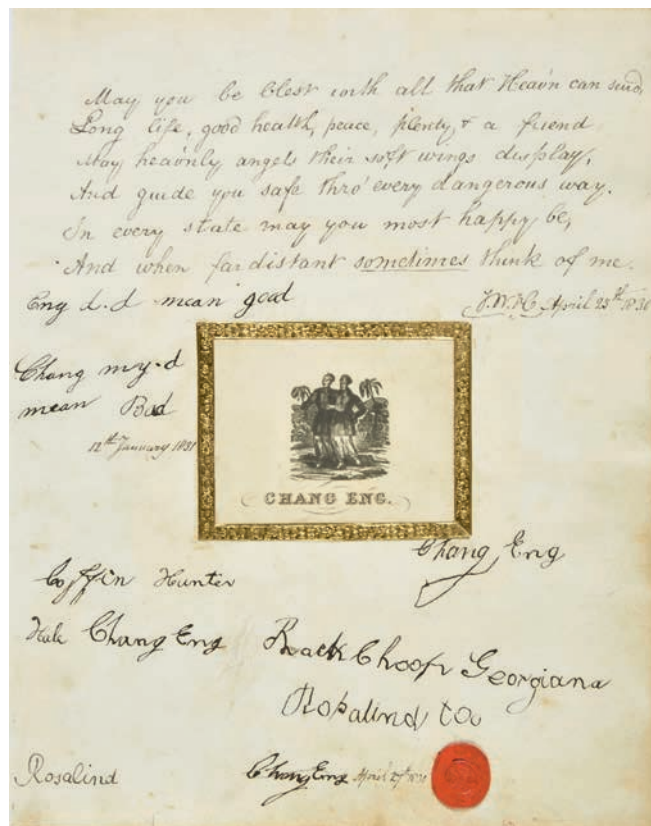 May you be blest with all that Heav'n can send,
Long life, good health, peace, plenty, & a friend
May heav'nly angels their soft wings display,
And guide you safe thro' every dangerous way.
In every state may you most happy be,
And when far distant sometimes think of me.
Eng d.d mean good
April 23th 1831
Chang my.d
mean Bad
12th January 1831
CHANG ENG.
Chang Eng
Coffin Hunter
Hale Chang Eng
Rosalind
Georgiana
Rosalind
Chang Eng April 27th 1831